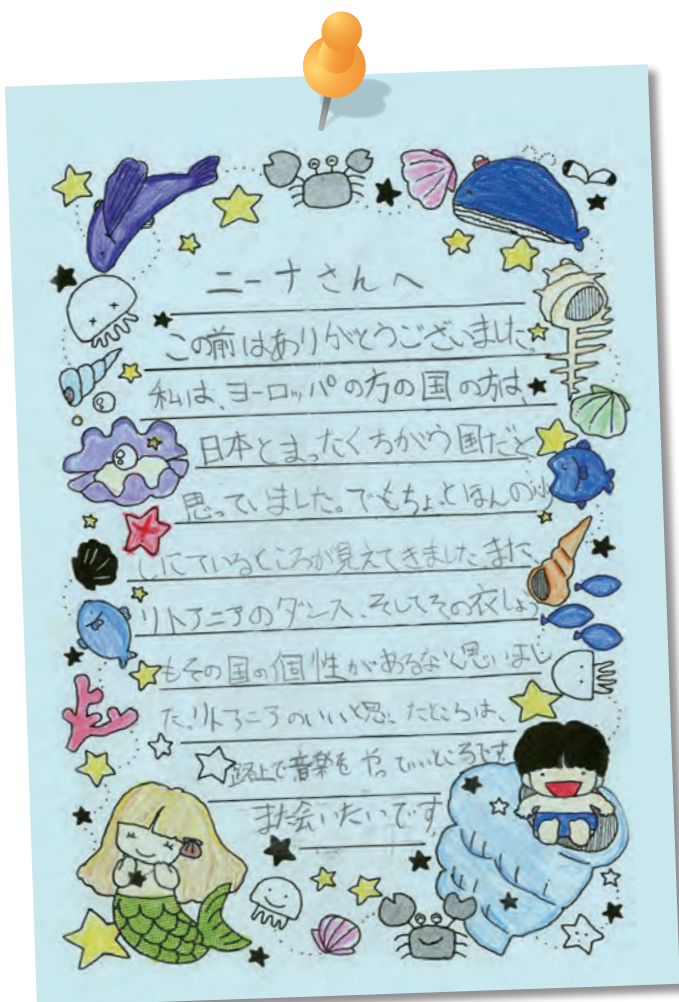 ニーナさんへ
この前はありがとうございました。
私は、ヨーロッパの方の国の方は、
日本とまったくちがう国だと
思っていました。でもちょっとほんの少
しにているところが見えてきました。また、
リトアニアのダンス、そしてその衣しょう
もその国の個性があるなと思いまし
た。リトアニアのいいと思ったところは、
路上で音楽をやっていいところです。
また会いたいです。